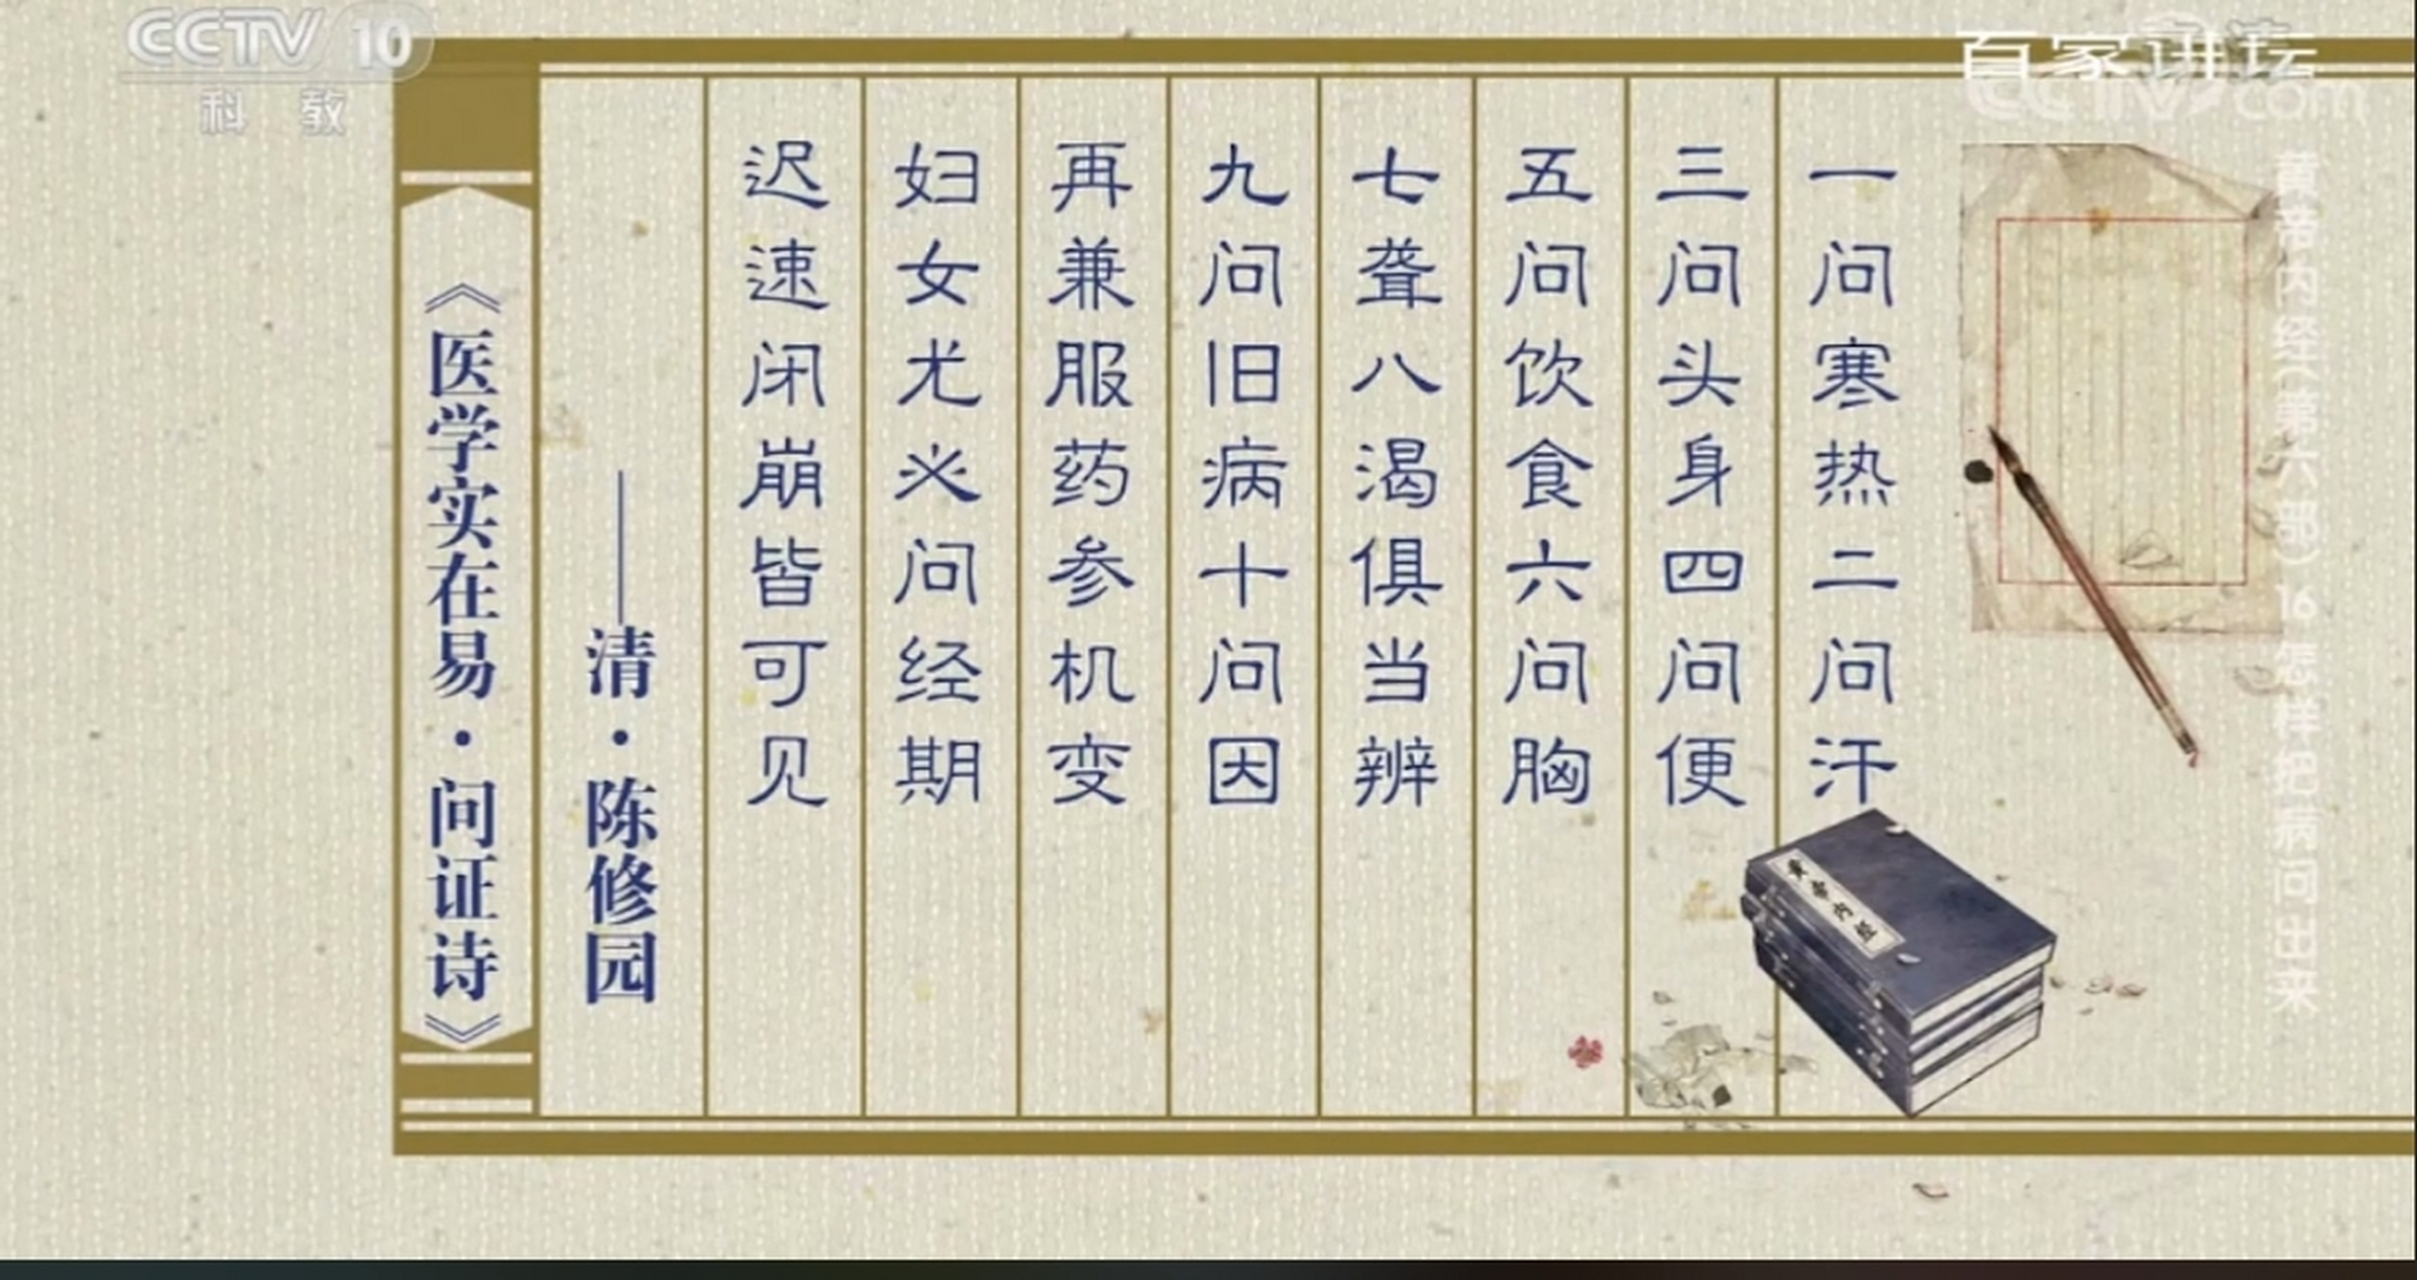 CCTV 10
科教
百家讲坛
CCTV.com
黄帝内经（第六部）16 怎样把病问出来
一问寒热二问汗
三问头身四问便
五问饮食六问胸
七聋八渴俱当辨
九问旧病十问因
再兼服药参机变
妇女尤必问经期
迟速闭崩皆可见
——清·陈修园
《医学实在易·问证诗》
黄帝内经